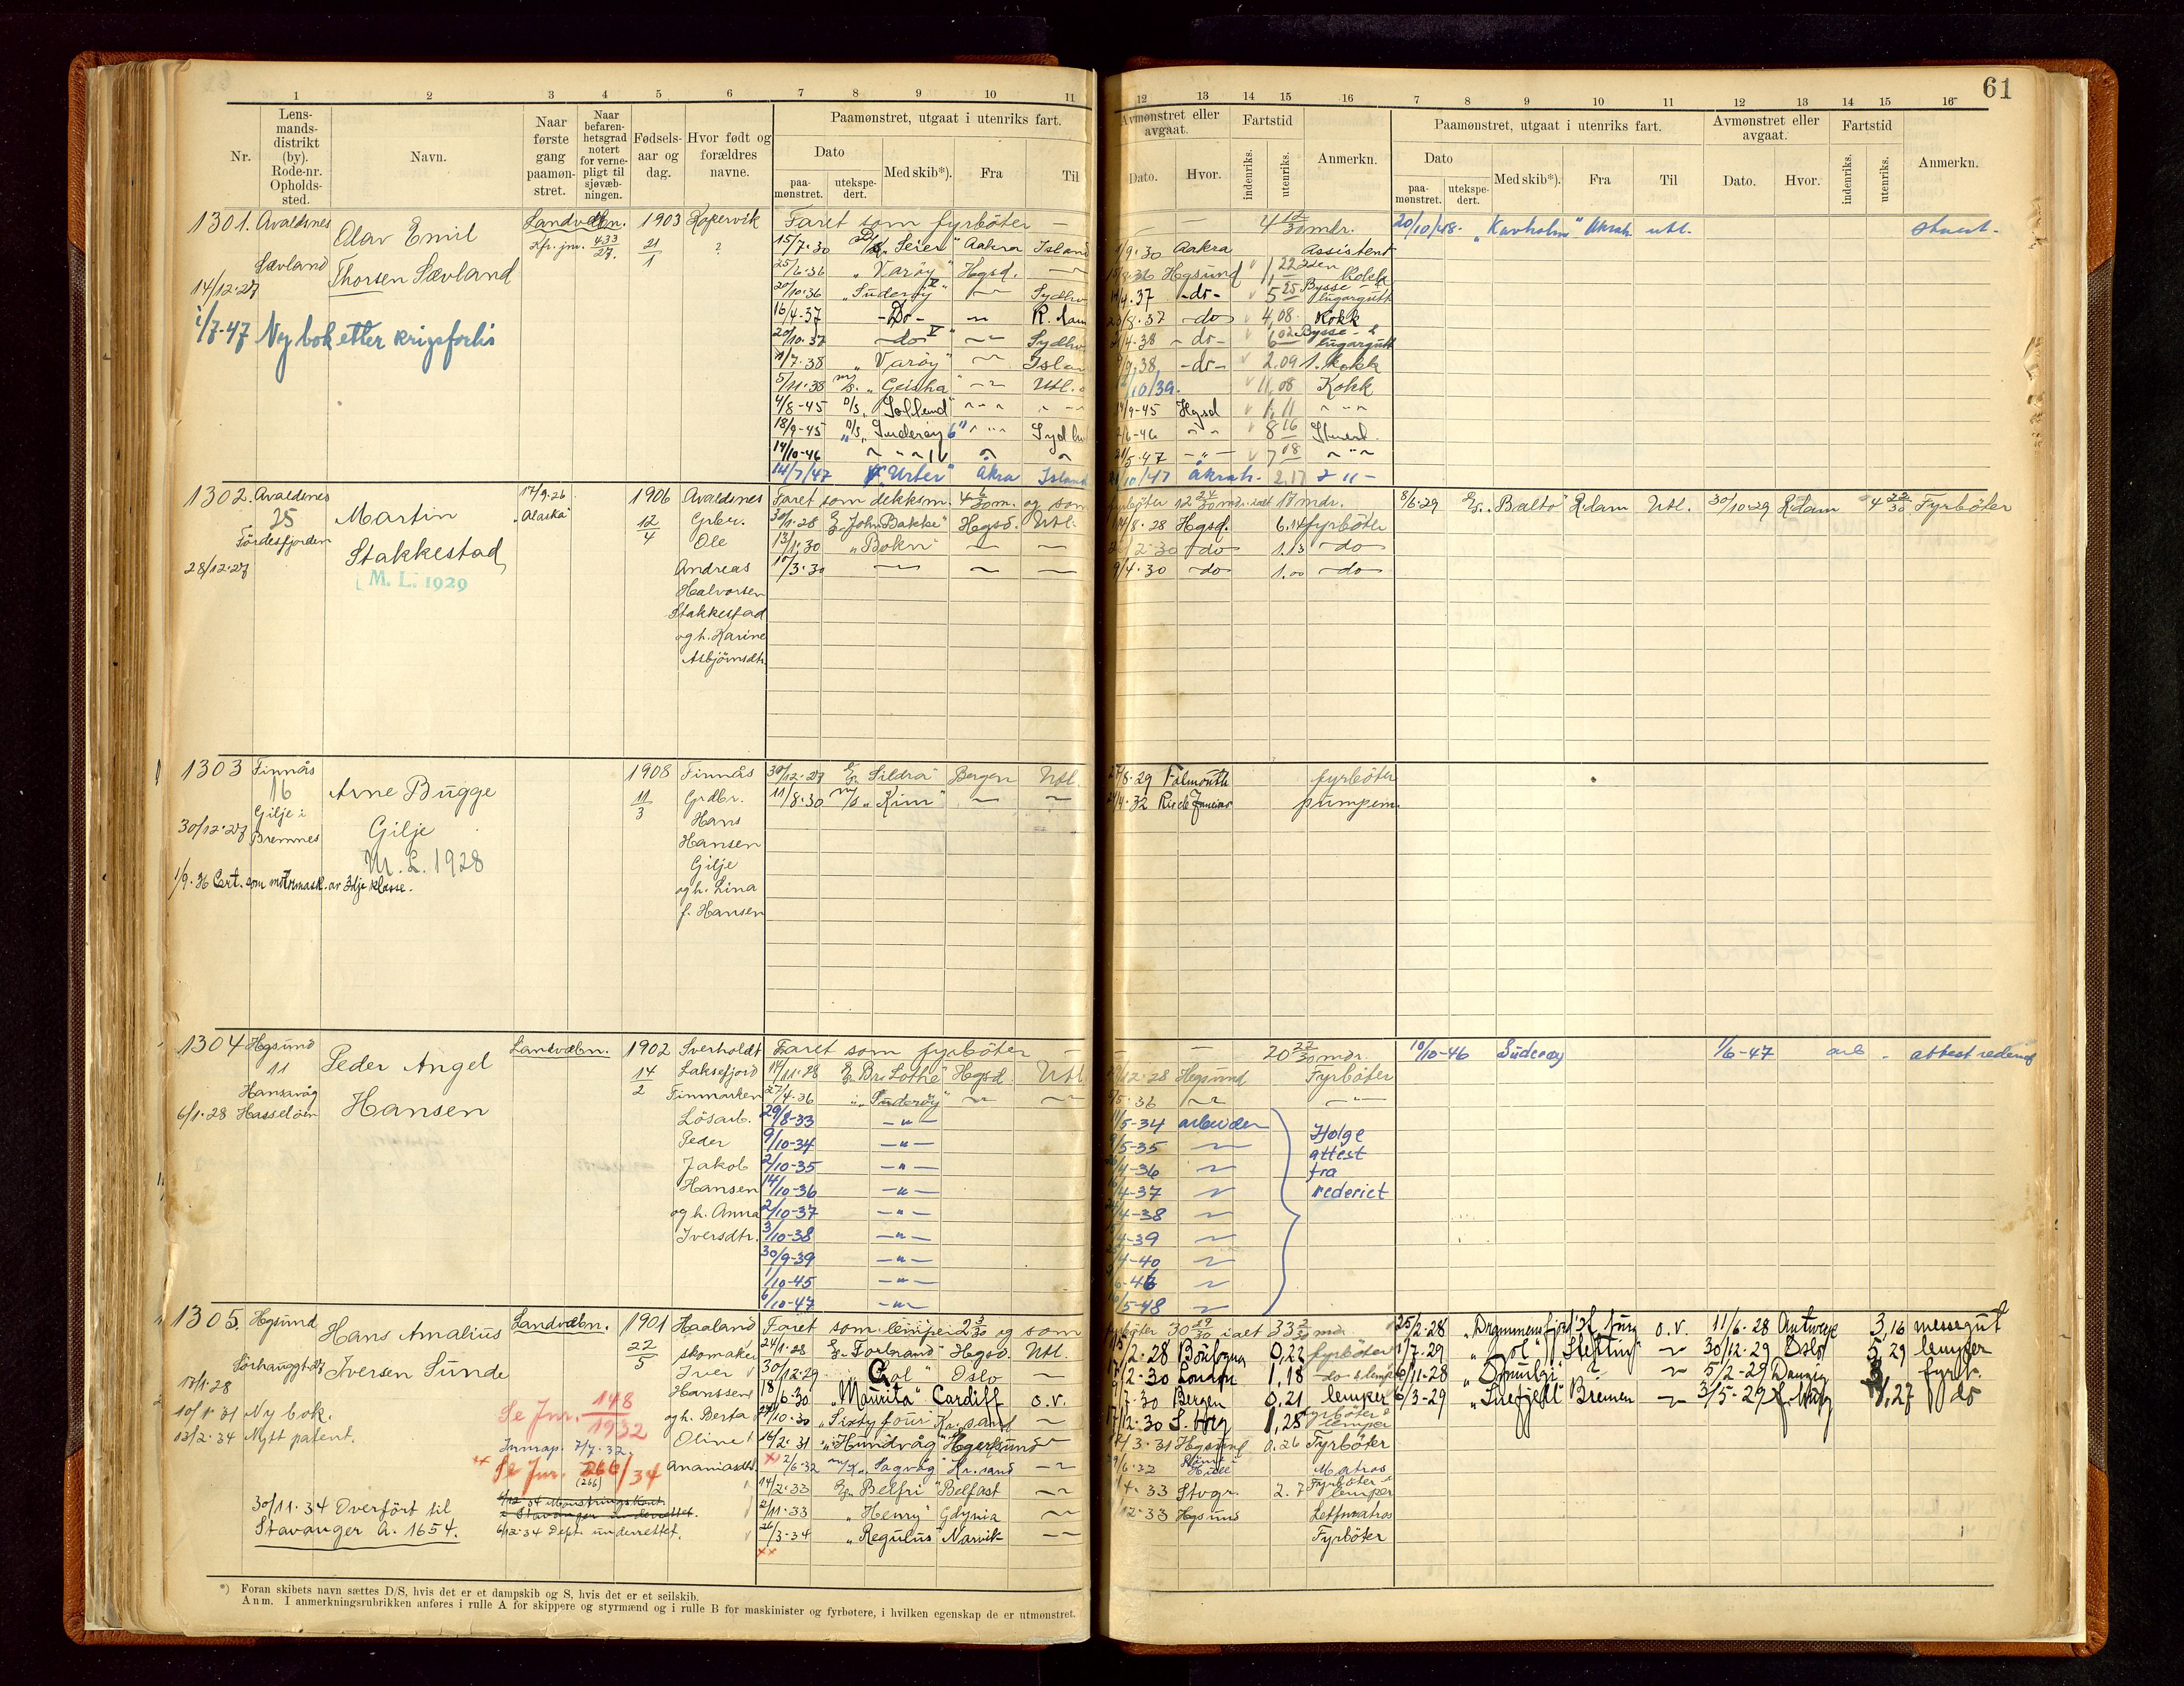 61
1 2 3 4 5 6 7 8 9 10 11
12 13 14 15 16 7 8 9 10 11 12 13 14 15 16
Nr.
Lensmandsdistrikt (by). Rode-nr. Opholdssted.
Navn.
Naar første gang paamønstret.
Naar befarenhetsgrad notert for vernepligt til sjøvæbningen.
Fødselsaar og dag.
Hvor født og forældres navne.
Paamønstret, utgaat i utenriks fart.
Dato
paamønstret. utekspedert.
Med skib*).
Fra
Til
Avmønstret eller avgaat.
Dato.
Hvor.
Fartstid
indenriks. utenriks.
Anmerkn.
Paamønstret, utgaat i utenriks fart.
Dato
paamønstret. utekspedert.
Med skib*).
Fra
Til
Avmønstret eller avgaat.
Dato.
Hvor.
Fartstid
indenriks. utenriks.
Anmerkn.
1301. Avaldsnes
Sævland
14/12-27
Olav Emil
Thorsen Sævland
Landvæbn.
1903
21/1
Kopervik
?
7-47 Ny bok etter krigsforlis
Faret som fyrböter — 4 12/30 mdr.
15/7-30 "Seier" Aakra Island 9.30 Aakra Assistent
25/6-36 "Varöy" Hgsd. Hgsund Kokk
20/10-36 "Suderöy" Sydh 4.37 -do- 5 25 Bysse- lugargutt
16/4-37 -Do- R.dam 8.37 -do- 4,08 Kokk
20/10-37 -do- V Sydh 4-38 -do- 6 Bysse- lugargutt
7-38 "Varöy" 9.38 -do- 2.09 1. kokk
5/11-38 M/S. "Geisha" Utl. 10/39. 11,08 Kokk
4/8-45 D/S "Solland" 9-45 Hgsd 1,11
18/9-45 D/S "Suderøy 6" Syd 6-46 8 16 Stuert.
14/10-46 5-47 7 08
14/7/47 "Urter" Åkra Island 10/47 Åkrah. 2,17
20/10/48. "Karholm" Åkrah. utl. stuert.
1302. Avaldsnes
25
Fördesfjorden
28/12-27
Martin
Stakkestad
M. L. 1929
17/9.26
"Alaska"
1906
12/4
Avaldsnes
Grbr.
Ole
Andreas
Halvorsen
Stakkestad
og h. Karine
Asbjörnsdtr.
Faret som dekksm. 4 m. og som fyrböter 12 24/30 mdr. ialt 17 mdr.
30/1-28 "John Bakke" Hgsd. Utl. 8.28 Hgsd. 6.14 fyrböter
13/1.30 "Bokn" 2-30 do 1.13 do
/3-30 9/4.30 do 1.00 do
8/6-29 "Bælto" R.dam Utl. 30/10-29 R.dam 4 22/30 Fyrböter
1303 Finnås
16
Gilje i
Bremnes
30/12-27
Arne Bugge
Gilje
M. L. 1928
1/9.36 Cert. som motormask. av 3dje klasse.
1908
11/3
Finnås
Grdbr.
Hans
Hansen
Gilje
og h. Lina
f. Hansen
30/12-27 "Sildra" Bergen Utl. 8.29 Falmouth fyrböter
11/8.30 M/S "Kim" 4.32 Rio de Janeiro pumpem.
1304 Hgsund
11
Hansavåg
6/1.28 Hasselöen
Peder Angel
Hansen
Landvæbn.
1902
14/2
Sverholdt
Laksefjord
Finmarken
Lösarb.
Peder
Jakob
Hansen
og h. Anna
Iversdtr.
Faret som fyrböter — 20 22/30 mdr.
19/11-28 "Br. Lothe" Hgsd. Utl. 12-28 Hgsund Fyrböter
27/4-36 "Suderöy" 5.36
29/8-33 —"— 5-34 arbeider
9/10-34 —"— 5-35
2/10-35 —"— 4-36
14/10-36 —"— 4-37
2/10-37 —"— 4-38
3/10-38 —"— 4-39
30/9-39 —"— 4-40
1/10-45 —"— 6-46
6/10-47 —"— 5-48
Ifølge
attest
fra
rederiet
10/10-46 Suderøy 1/6-47 arb - attest rederiet
1305. Hgsund
Sörhauggt.
17/1-28
Hans Amalius
Iversen Sunde
Landvæbn.
1901
22/5
Haaland
skomaker
Iver
Hanssen
og h. Berta
Oline
Ananiasdtr
10/1-31 Ny bok.
13/2-34 Nytt patent.
Se Jnr. 148/1932
Innrap. 7/7.32.
Se Jnr. 266/34
(266)
30/11.34 Overfört til
Stavanger A. 1654.
6/12-34 Mönstringskont. i Stavanger underrettet.
6/12-34 Dept. underrettet.
Faret som lemper 2 3/30 og som fyrböter 30 29/30 ialt 33 2/30 mdr.
24/1-28 "Fortnand" Hgsd. Utl. 2-28 Boulogne 0,22 fyrböter
30/12-29 "Gol" Oslo 2-30 London 1,18 do & lemper
18/6-30 "Maurita" Cardiff o.v. 7-30 Bergen 0,21 lemper
10-30 "Sixty four" Kr.sand 12-30 S. Hvg 1,28 fyrböter & lemper
16/2.31 "Hundvåg" Egersund 3.31 Hgsund 0,26 Fyrböter
2/6-32 "Sagvåg" Kr.sand 6.32 Matros
14/2-33 "Belfri" Belfast 4.33 Stvgr. 2.7 Fyrböter & lemper
2/11-33 "Henry" Gdynia 12-33 Hgsund Lettmatros
26/3-34 "Regulus" Narvik Fyrböter
25/2-28 "Drammensfjord" o.v. 11/6-28 Antwerp 3,16 messegut
1/7-29 "Gol" Stettin 30/12-29 Oslo 5 29 lemper
/11-28 5/2-29 Danzig fyrb.
6/3-29 "Surefjell" Bremen 3/5-29 1,27 do
*) Foran skibets navn sættes D/S, hvis det er et dampskib og S, hvis det er et seilskib.
Anm. I anmerkningsrubrikken anføres i rulle A for skippere og styrmænd og i rulle B for maskinister og fyrbøtere, i hvilken egenskap de er utmønstret.